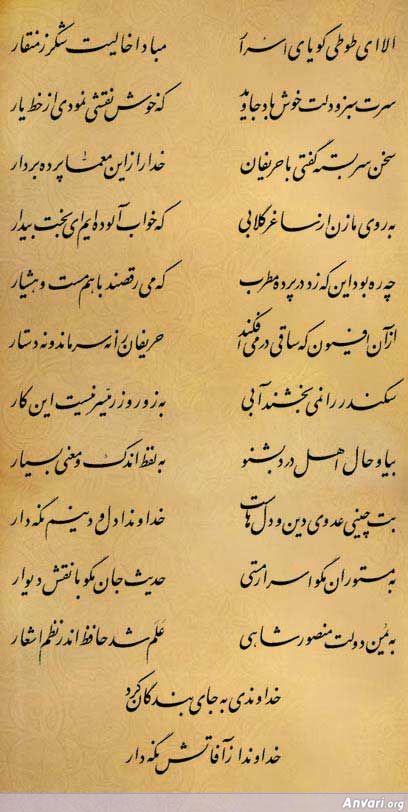 الا ای طوطی گویای اسرار مبادا خالیت شکر ز منقار
سرت سبز و دلت خوش باد جاوید که خوش نقشی نمودی از خط یار
سخن سربسته گفتی با حریفان خدا را زین معما پرده بردار
به روی ما زن از ساغر گلابی که خواب آلوده ایم ای بخت بیدار
چه ره بود این که زد در پرده مطرب که می رقصند با هم مست و هشیار
از آن افیون که ساقی در می افکند حریفان را نه سر ماند و نه دستار
سکندر را نمی بخشند آبی به زور و زر میسر نیست این کار
بیا و حال اهل درد بشنو به لفظ اندک و معنی بسیار
بت چینی عدوی دین و دل هاست خداوندا دل و دینم نگه دار
به مستوران مگو اسرار مستی حدیث جان مگو با نقش دیوار
به یمن دولت منصور شاهی علم شد حافظ اندر نظم اشعار
خداوندی به جای بندگان کرد
خداوندا ز آفاتش نگه دار
Anvari.org